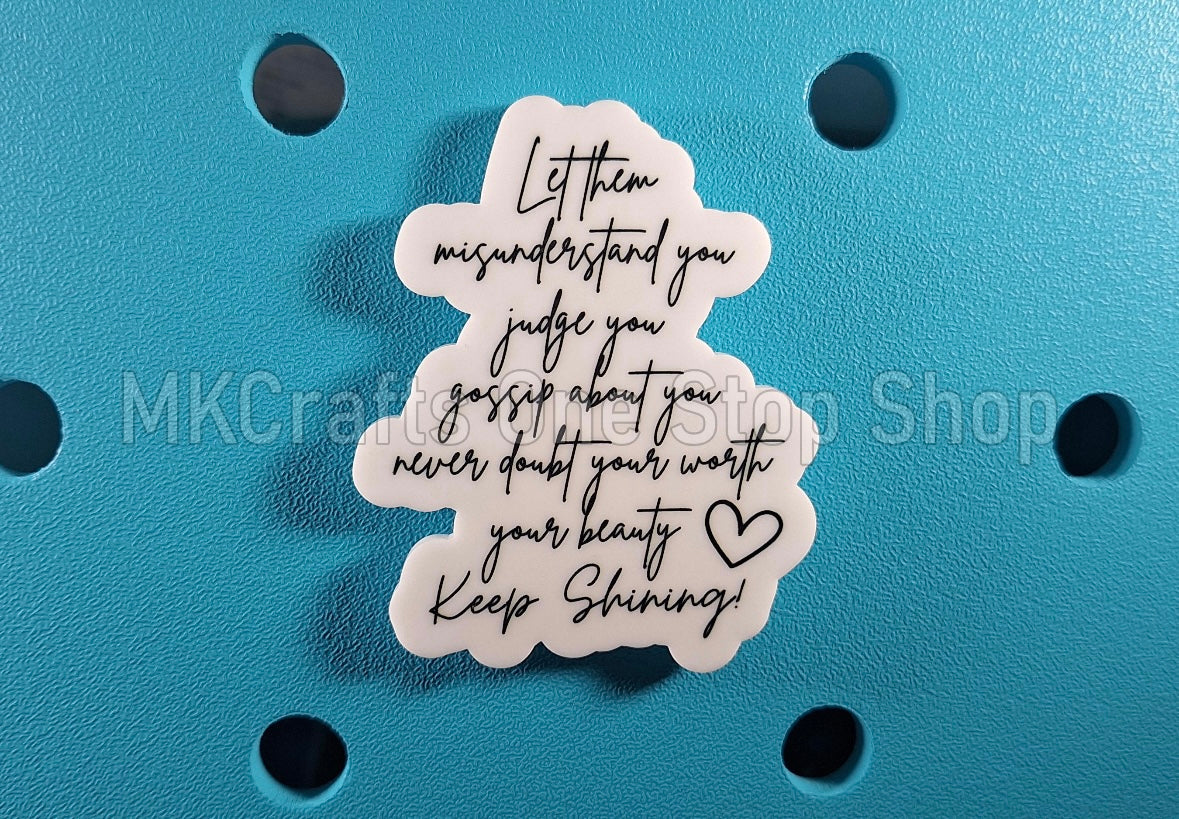 Let them
misunderstand you
judge you
gossip about you
MKCrafts One Stop Shop
never doubt your worth
your beauty
Keep Shining!